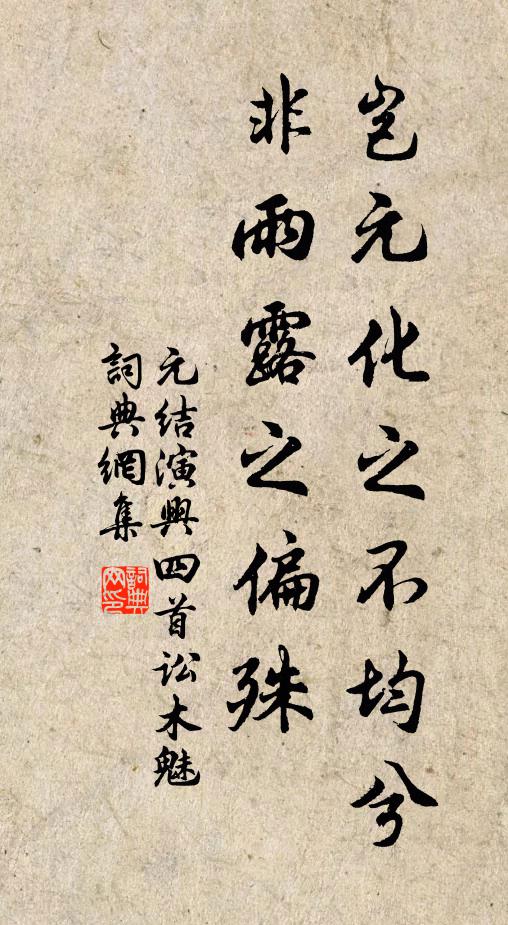 岂元化之不均兮
非雨露之偏殊
元结演興四首讼木魅
詞典網集
詞典网印